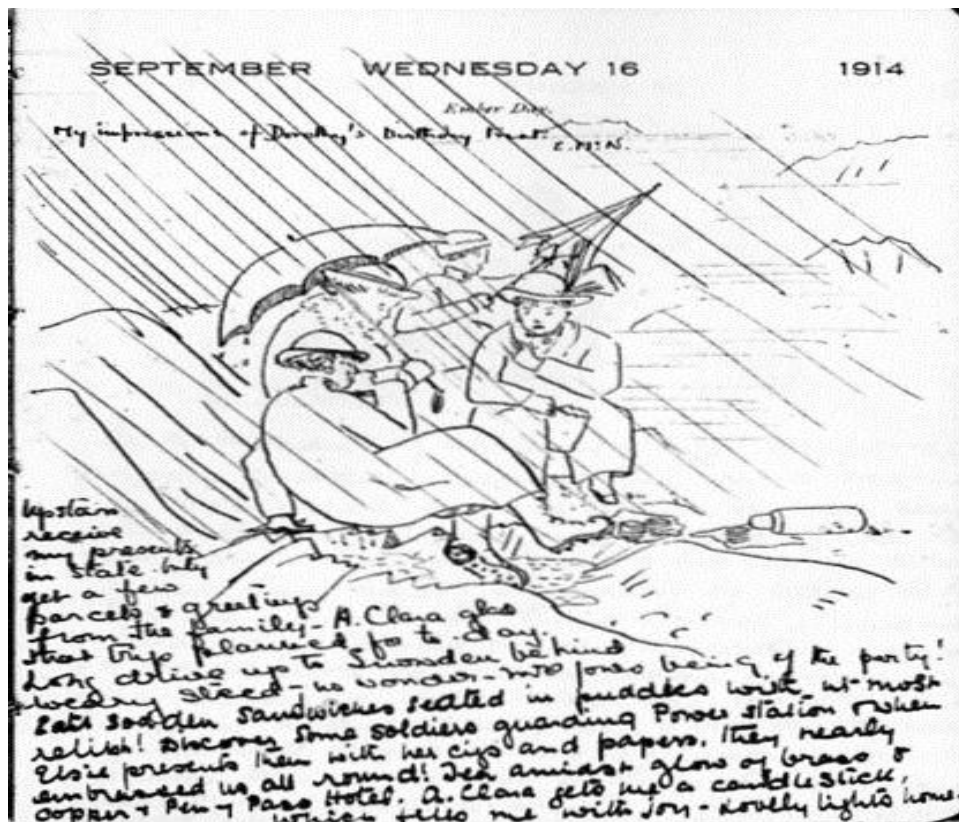 SEPTEMBER WEDNESDAY 16 1914
Ember Day.
My impressions of Dorothy's Birthday Treat.
E. McN.
Upstairs
receive
my presents
in state. Only
get a few
parcels & greetings
from the families - A. Clara glad
that trip planned for to-day.
Long drive up to Snowden behind
steed - no wonder - Mrs Jones being of the party!
Eat sodden sandwiches seated in puddles with utmost
relish! Discover some soldiers guarding Power Station & when
Elsie presents them with her cigs and papers, they nearly
embraced us all round! Tea amidst glow of brass &
copper Pen-y-Pass Hotel. A. Clara gets me a candlestick,
which fills me with joy - Lovelly lights home.